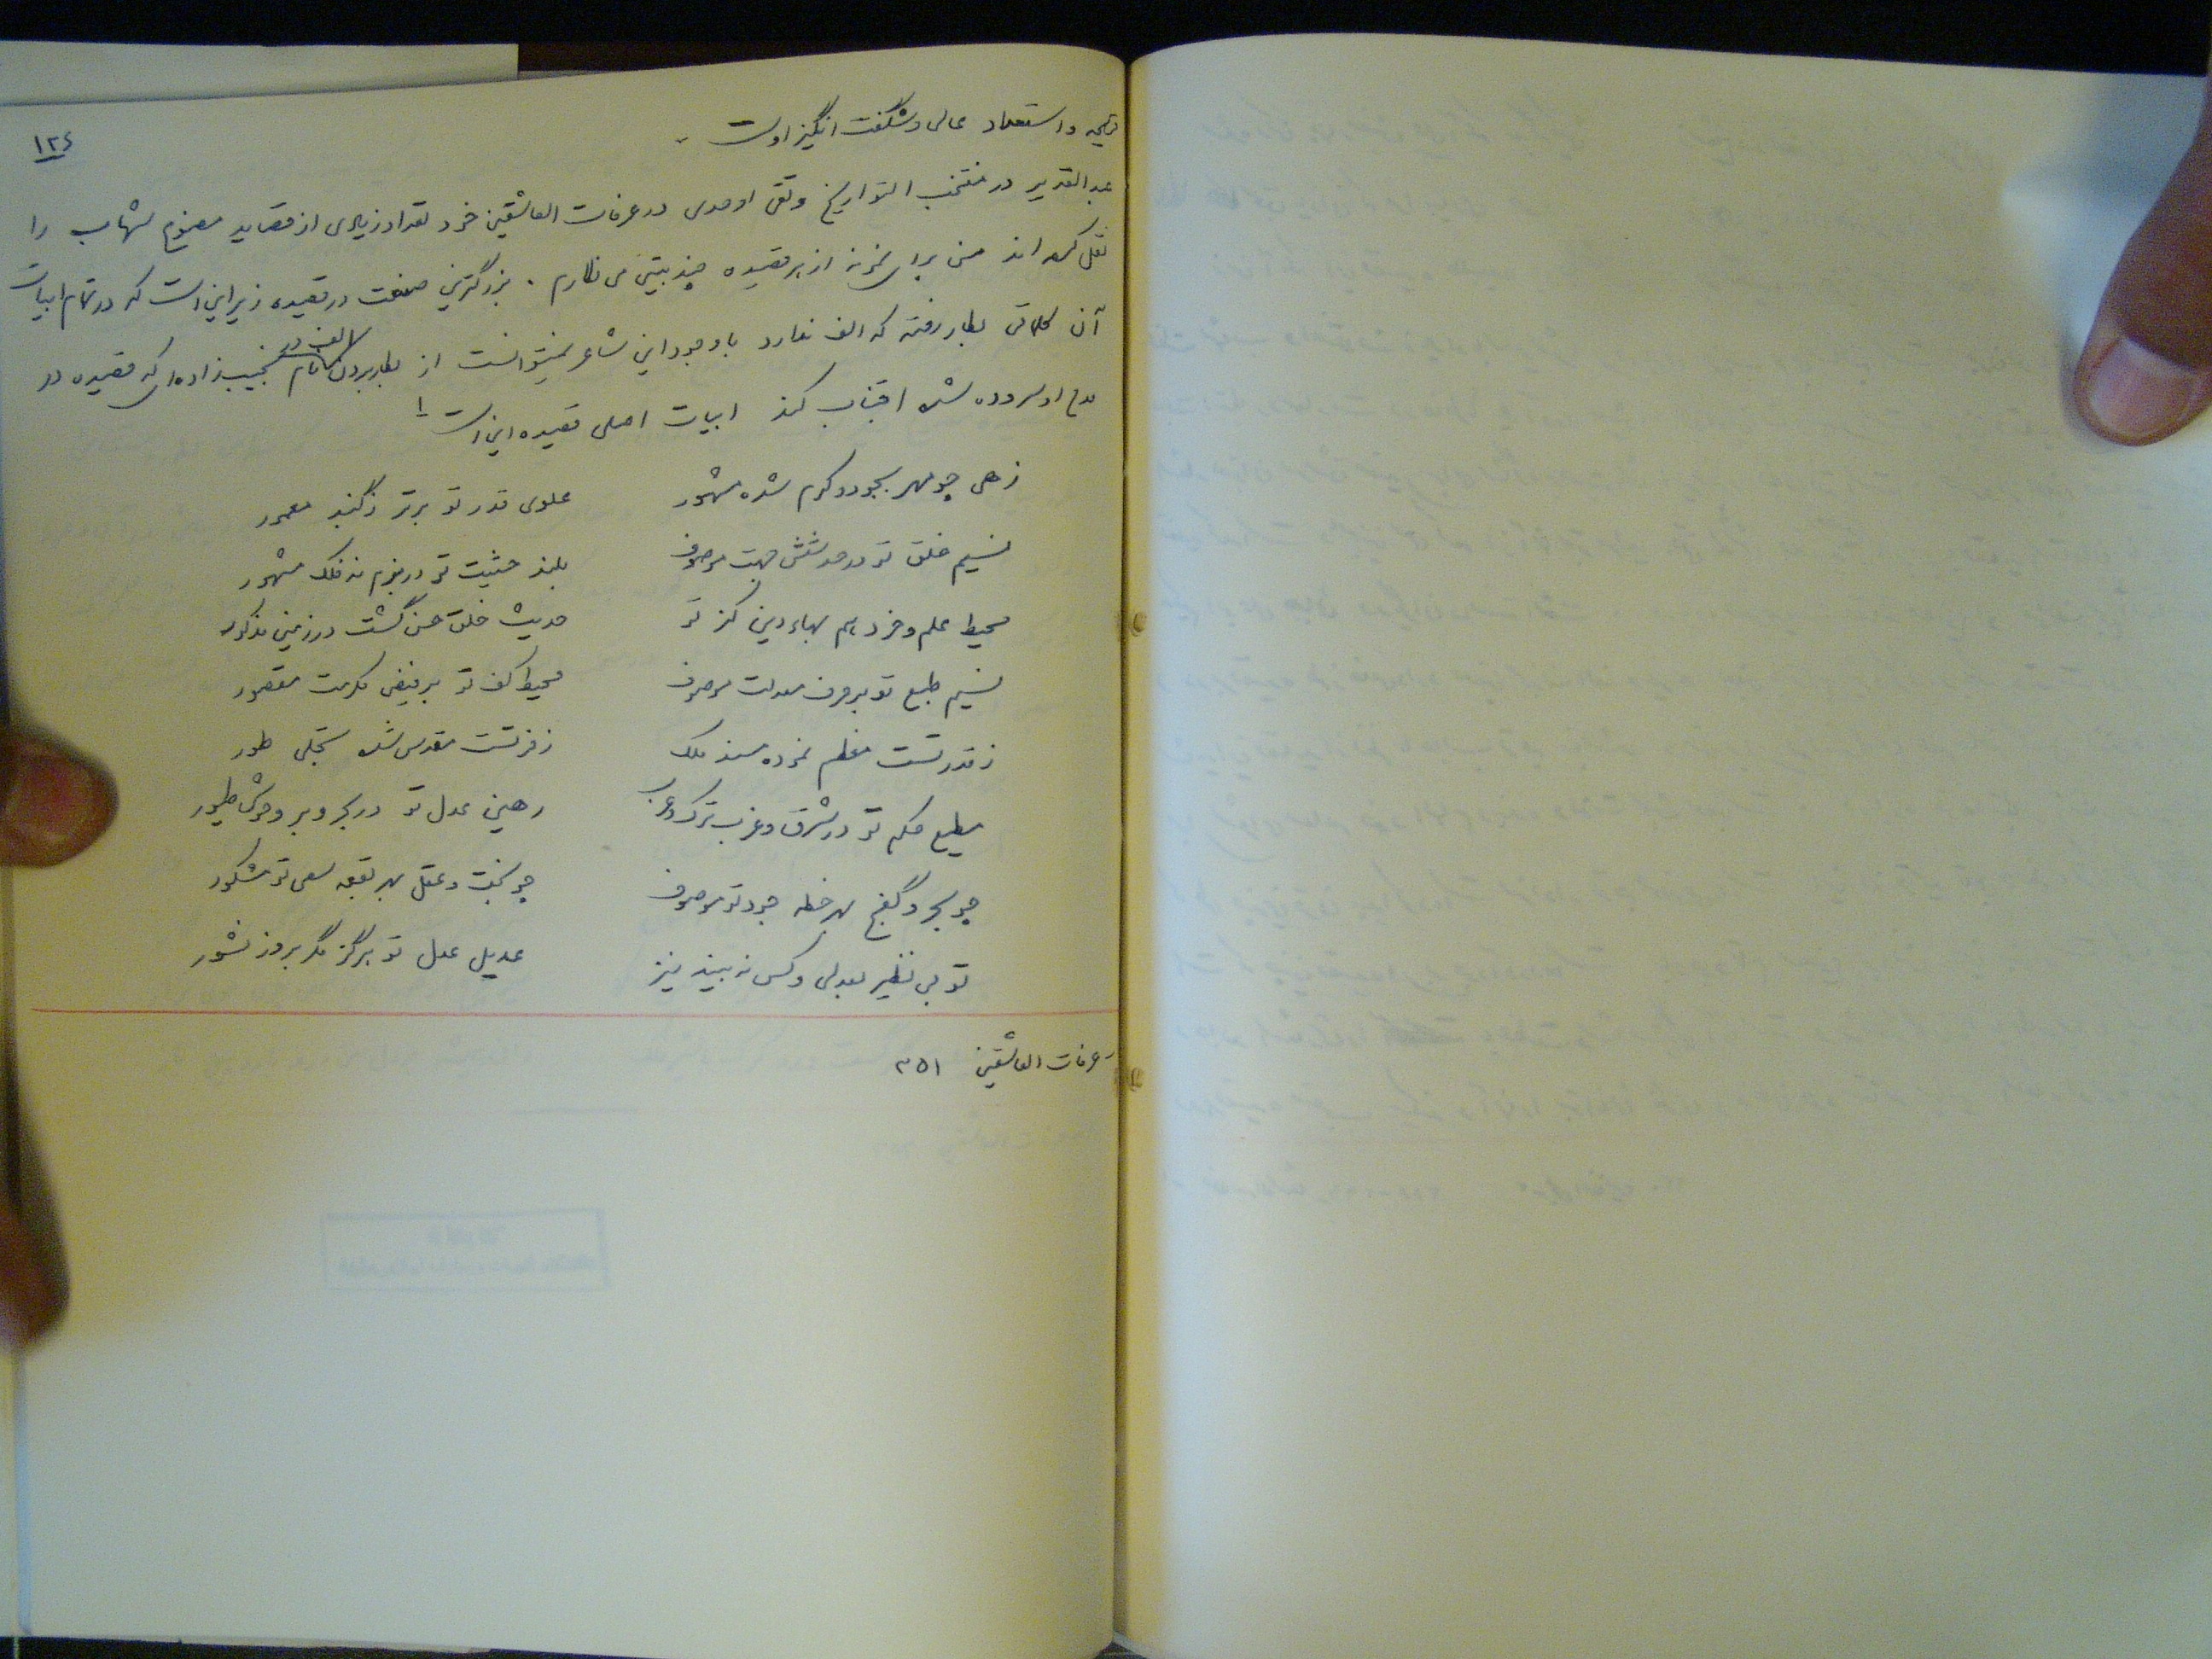 ۱۲۶
قریحه و استعداد عالی و شگفت انگیز اوست -
عبدالقدیر در منتخب التواریخ وتقی اوحدی در عرفات العاشقین خود تعداد زیادی از قصاید مصنوع شهاب را
نقل کرده اند من برای نمونه از هر قصیده چند بیتی می نگارم . بزرگترین صنعت در قصیده زیر این است که در تمام ابیات
آن کلماتی بکار رفته که الف ندارد با وجود این شاعر نمیتوانست از بکار بردن الف در نام نجیب زاده ای که قصیده در
مدح او سروده شده اجتناب کند ابیات اصلی قصیده این است ۱
زهی چو مهر بجود و کرم شده مشهور علوی قدر تو برتر ز گنبد معمور
نسیم خلق تو در حد شش جهت موصوف بلند حشمت تو در بزم نه فلک مشهور
محیط علم و خرد بهاء دین کز تو حدیث خلق حسن گشت در زمین مذکور
نسیم طبع تو بر صرف معدلت موصوف محیط کف تو بر فیض مکرمت مقصور
ز قدر تست معظم نموده مسند ملک ز فر تست مقدس شده تجلی طور
مطیع حکم تو در شرق و غرب ترک و عرب رهین عدل تو در بحر و بر وحوش طیور
چو بحر و گنج بهر خطه جود تو موصوف چو بخت و عقل بهر بقعه سعی تو مشکور
تو بی نظیر بعدلی و کس نه بیند نیز عدیل عدل تو هرگز مگر بروز نشور
عرفات العاشقین ۳۵۱